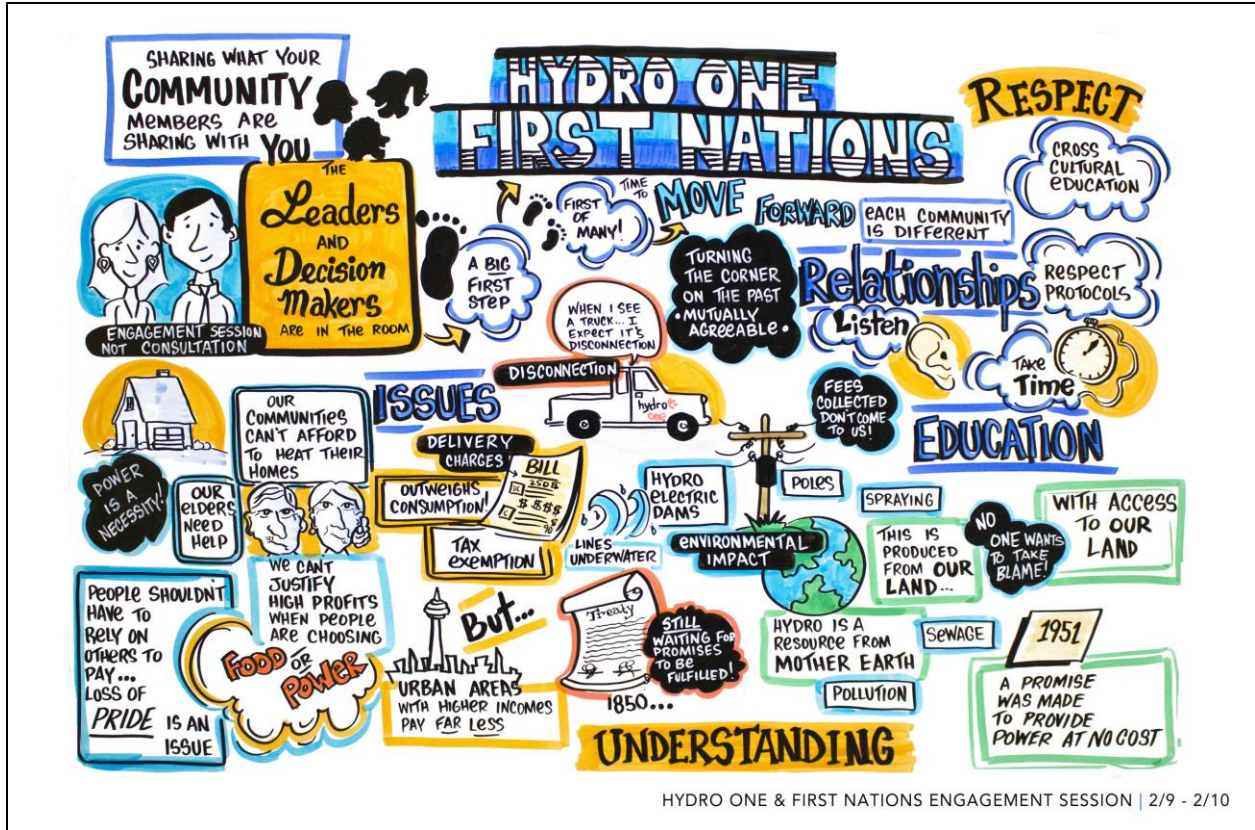 SHARING WHAT YOUR
COMMUNITY
MEMBERS ARE
SHARING WITH YOU
THE
Leaders
AND
Decision
Makers
ARE IN THE ROOM
ENGAGEMENT SESSION
NOT CONSULTATION
HYDRO ONE
FIRST NATIONS
A BIG
FIRST
STEP
FIRST
OF
MANY!
TIME
TO
MOVE FORWARD
TURNING
THE CORNER
ON THE PAST
• MUTUALLY
AGREEABLE •
EACH COMMUNITY
IS DIFFERENT
RESPECT
CROSS
CULTURAL
EDUCATION
Relationships
RESPECT
PROTOCOLS
Listen
TAKE
Time
EDUCATION
ISSUES
WHEN I SEE
A TRUCK... I
EXPECT IT'S
DISCONNECTION
DISCONNECTION
hydro
one
FEES
COLLECTED
DON'T COME
TO US!
POWER
IS A
NECESSITY!
OUR
COMMUNITIES
CAN'T AFFORD
TO HEAT THEIR
HOMES
OUR
ELDERS
NEED
HELP
DELIVERY
CHARGES
OUTWEIGHS
CONSUMPTION!
BILL
TAX
EXEMPTION
HYDRO
ELECTRIC
DAMS
LINES
UNDERWATER
POLES
ENVIRONMENTAL
IMPACT
SPRAYING
THIS IS
PRODUCED
FROM OUR
LAND...
NO
ONE WANTS
TO TAKE
BLAME!
WITH ACCESS
TO OUR
LAND
PEOPLE SHOULDN'T
HAVE TO
RELY ON
OTHERS TO
PAY...
LOSS OF
PRIDE IS AN
ISSUE
WE CAN'T
JUSTIFY
HIGH PROFITS
WHEN PEOPLE
ARE CHOOSING
FOOD OR
POWER
But...
URBAN AREAS
WITH HIGHER INCOMES
PAY FAR LESS
Treaty
1850...
STILL
WAITING FOR
PROMISES
TO BE
FULFILLED!
HYDRO IS A
RESOURCE FROM
MOTHER EARTH
SEWAGE
POLLUTION
1951
A PROMISE
WAS MADE
TO PROVIDE
POWER AT NO COST
UNDERSTANDING
HYDRO ONE & FIRST NATIONS ENGAGEMENT SESSION | 2/9 - 2/10